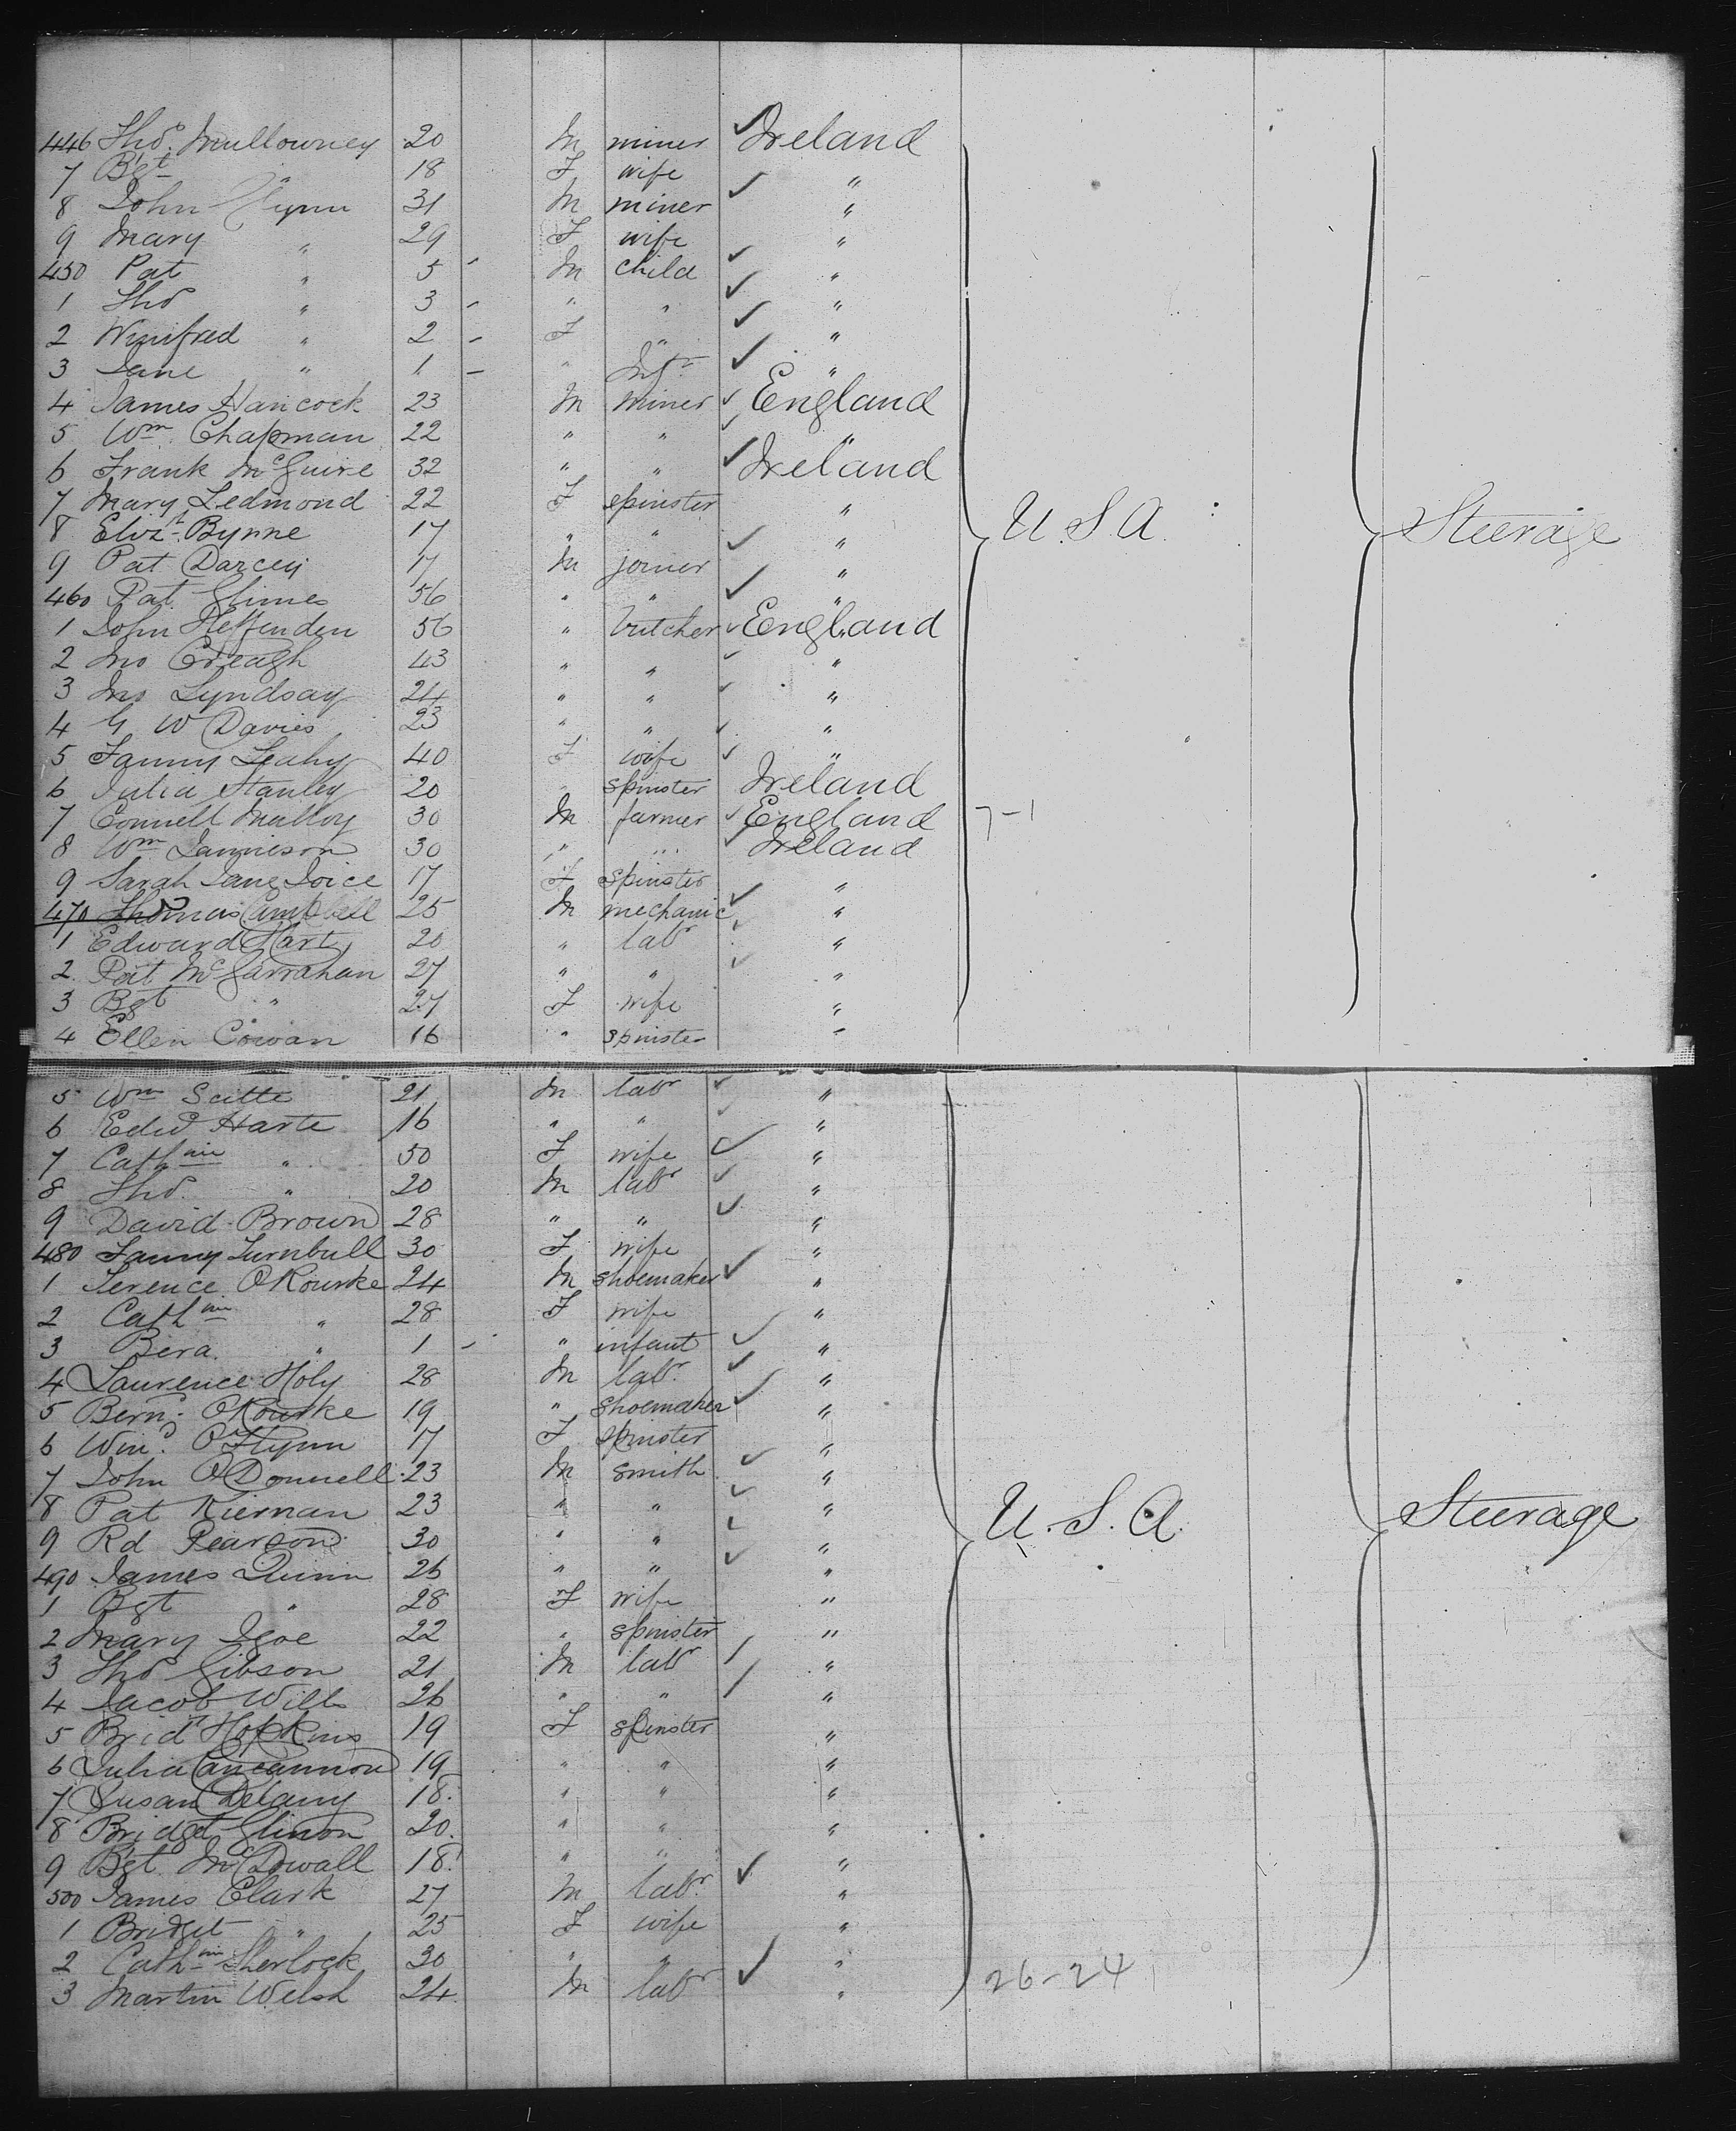 446 Thos. Mullowney 20 M miner Ireland
7 Bgt " 18 F wife "
8 John Flynn 31 M miner "
9 Mary " 29 F wife "
450 Pat " 5 M child "
1 Thos " 3 " " "
2 Winifred " 2 F " "
3 Jane " 1 " Inft "
4 James Hancock 23 M miner England
5 Wm. Chapman 22 " " "
6 Frank McGuire 32 " " Ireland
7 Mary Ledmond 22 F spinster "
8 Elizt. Byrne 17 " " "
9 Pat Darcey 17 M joiner "
460 Pat. Glimes 56 " " "
1 John Heffenden 56 " butcher England
2 Jno Creagh 43 " " "
3 Jno Lyndsay 24 " " "
4 G W Davies 23 " " "
5 Fanny Leahy 40 F wife "
6 Julia Stanley 20 " spinster Ireland
7 Connell Mulloy 30 M farmer England 7-1
8 Wm Jamieson 30 " " Ireland
9 Sarah Jane Joice 17 F spinster "
470 Thomas Campbell 25 M mechanic "
1 Edward Hart 20 " labr "
2 Pat McGarrahan 27 " " "
3 Bgt " 27 F wife "
4 Ellen Cowan 16 " spinster "
U.S.A. Steerage
5 Wm Scitte 21 M labr "
6 Edwd Harte 16 " " "
7 Cathne " 50 F wife "
8 Thos. " 20 M labr "
9 David Brown 28 " " "
480 Fanny Turnbull 30 F wife "
1 Terence O'Rourke 24 M shoemaker "
2 Cathne " 28 F wife "
3 Bera " 1 " infant "
4 Laurence Holy 28 M labr. "
5 Bernd. O'Rourke 19 " shoemaker "
6 Wind. O'Flynn 17 F spinster "
7 John O'Donnell 23 M smith "
8 Pat Kiernan 23 " " "
9 Rd Pearson 30 " " "
490 James Quinn 26 " " "
1 Bgt " 28 F wife "
2 Mary Igoe 22 " spinster "
3 Thos Gibson 21 M labr "
4 Jacob Wills 26 " " "
5 Bridt Hopkins 19 F spinster "
6 Julia Concannon 19 " " "
7 Susan Delany 18 " " "
8 Bridget Glinon 20 " " "
9 Bgt McDowall 18 " " "
500 James Clark 27 M labr. "
1 Bridget " 25 F wife "
2 Cathne Sherlock 30 " " "
3 Martin Welsh 24 M labr "
U.S.A. Steerage
26-24